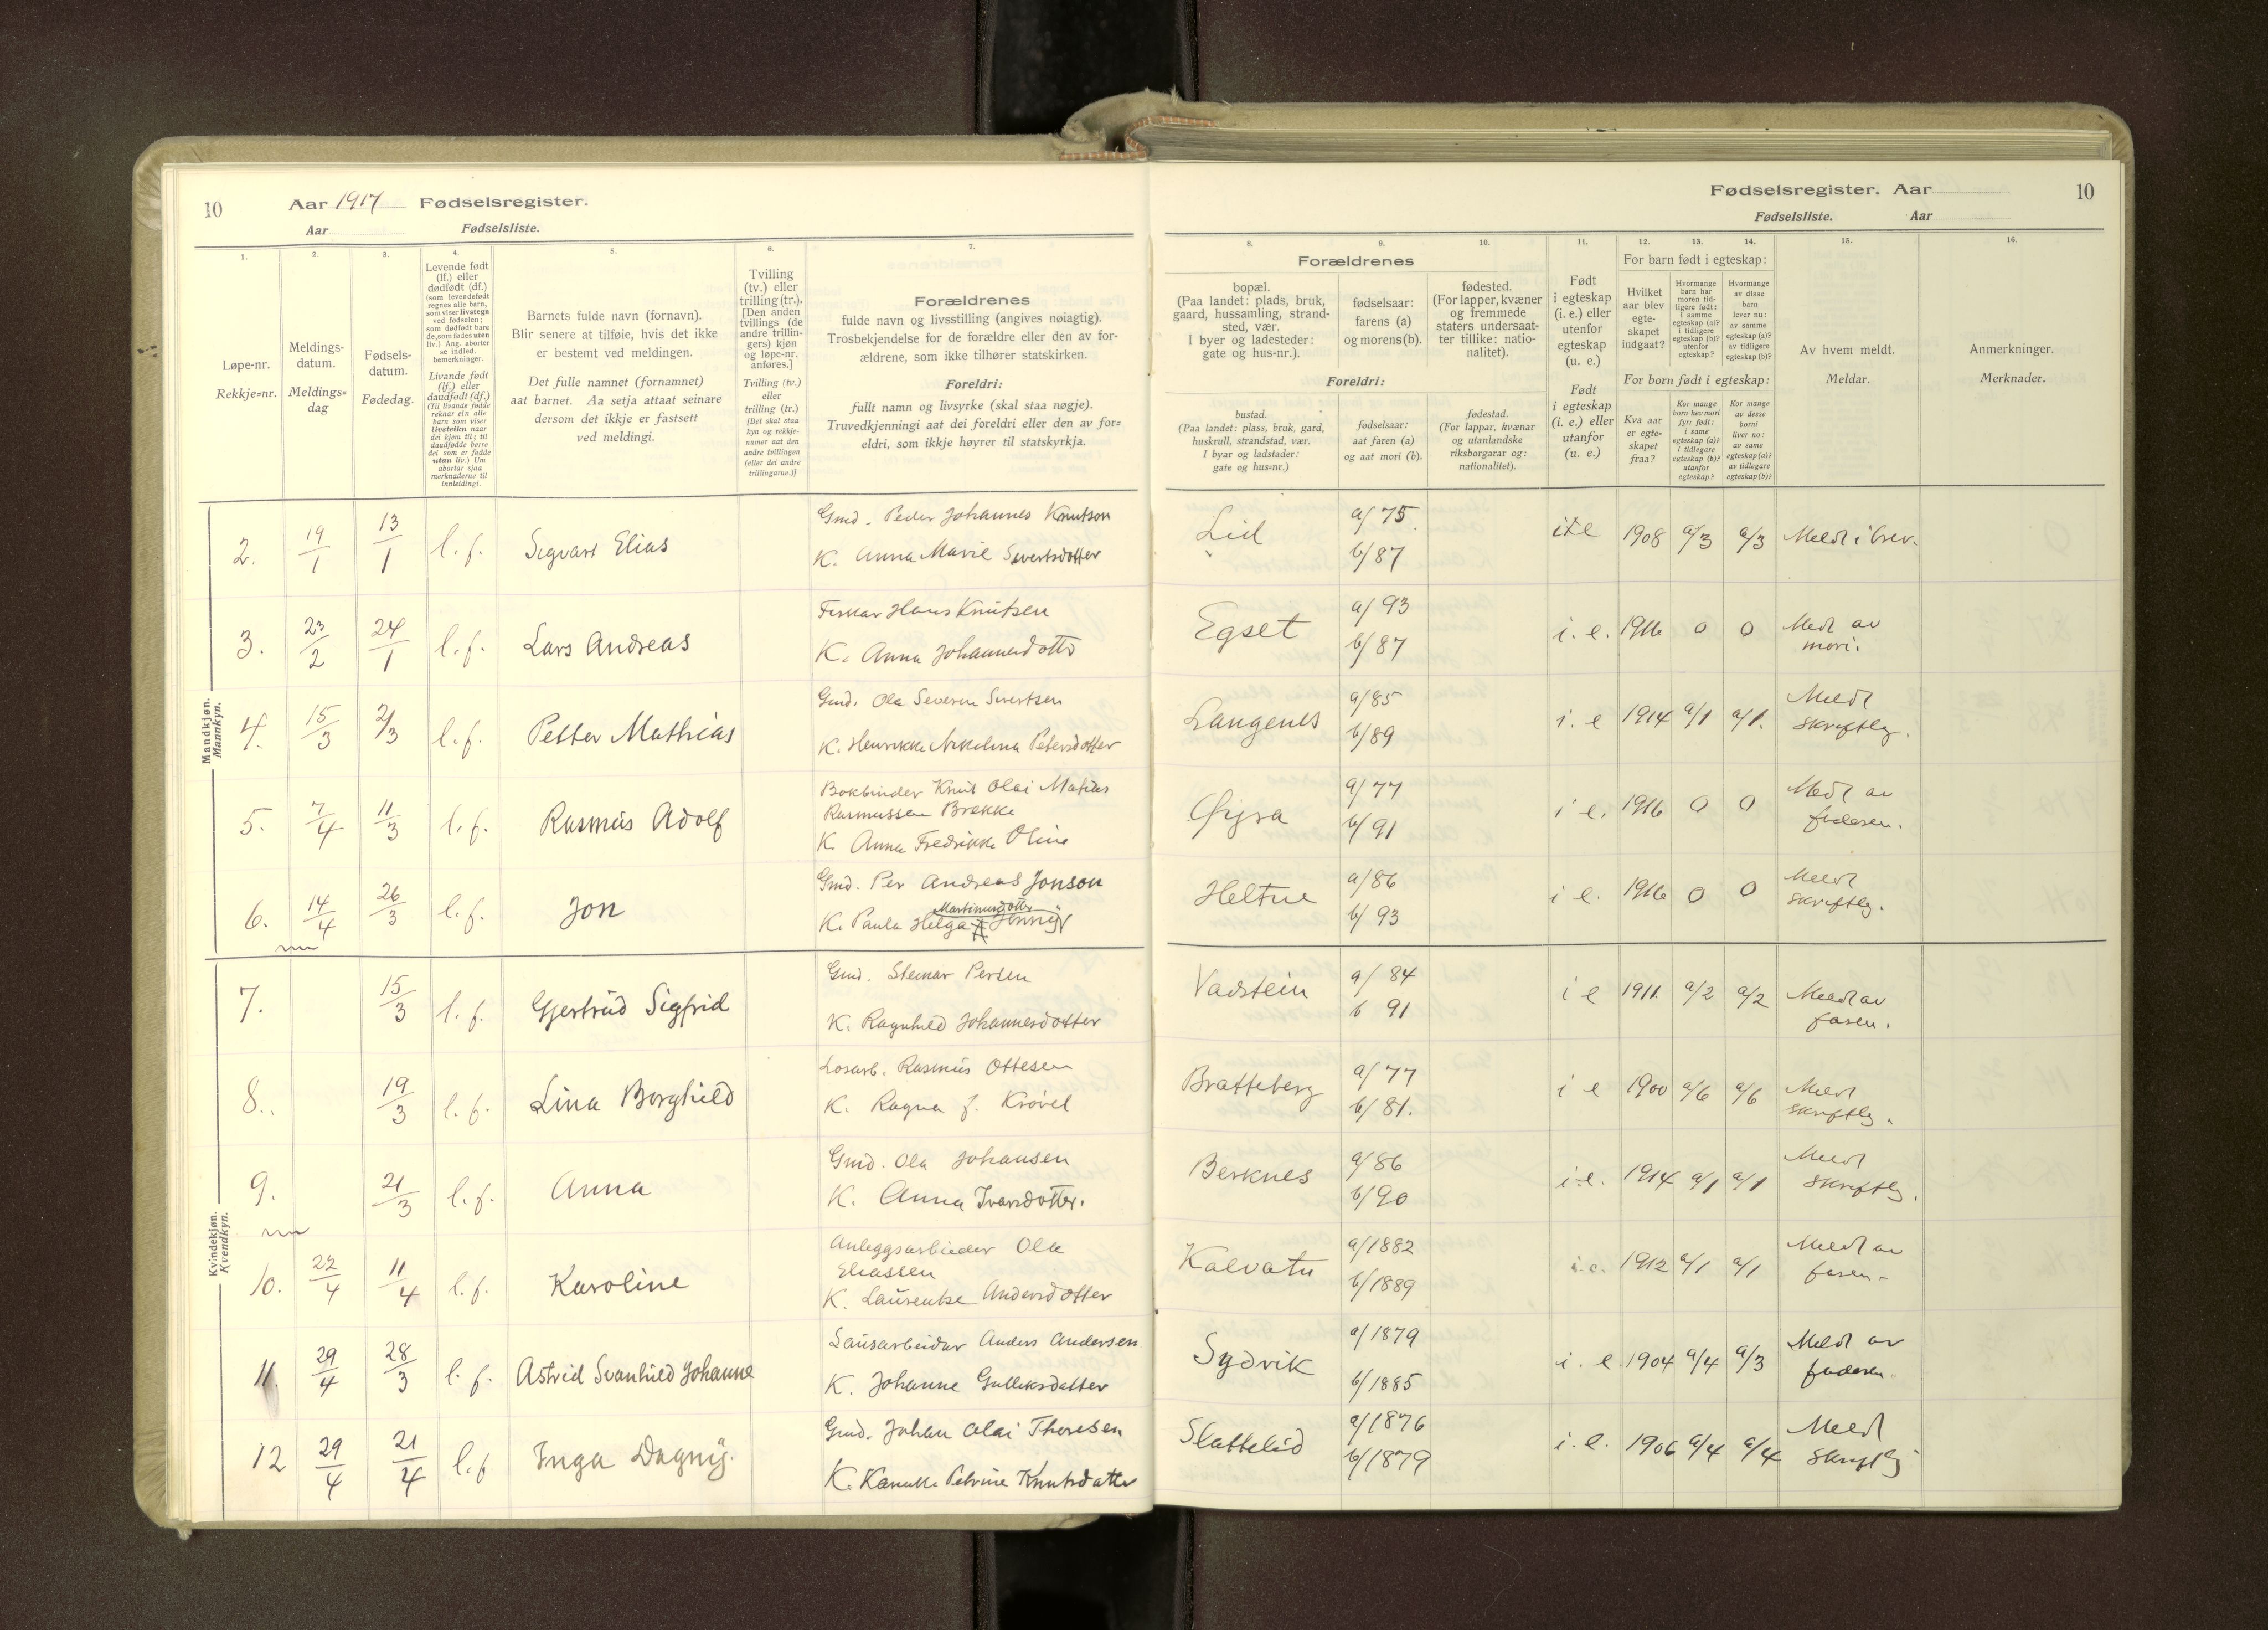 10 Aar 1917 Fødselsregister.
Aar Fødselsliste.
Fødselsregister. Aar 10
Fødselsliste. Aar
1.
Løpe-nr.
Rekkje=nr.
2.
Meldings-
datum.
Meldings=
dag
3.
Fødsels-
datum.
Fødedag.
4.
Levende født
(lf.) eller
dødfødt (df.)
(som levendefødt
regnes alle barn,
som viser livstegn
ved fødselen;
som dødfødt bare
de, som fødes uten
liv.) Ang. aborter
se indled.
bemerkninger.
Livande født
(lf.) eller
daudfødt (df.)
(Til livande fødde
reknar ein alle
barn som viser
livsteikn naar
dei kjem til; til
daudfødde berre
dei som er fødde
utan liv.) Um
abortar sjaa
merknaderne til
innleidingi.
5.
Barnets fulde navn (fornavn).
Blir senere at tilføie, hvis det ikke
er bestemt ved meldingen.
Det fulle namnet (fornamnet)
aat barnet. Aa setja attaat seinare
dersom det ikkje er fastsett
ved meldingi.
6.
Tvilling
(tv.) eller
trilling (tr.).
[Den anden
tvillings (de
andre trillin-
gers) kjøn
og løpe-nr.
anføres.]
Tvilling (tv.)
eller
trilling (tr.)
[Det skal staa
kyn og rekkje-
numer aat den
andre tvillingen
(eller dei andre
trillingarne.)]
7.
Forældrenes
fulde navn og livsstilling (angives nøiagtig).
Trosbekjendelse for de forældre eller den av for-
ældrene, som ikke tilhører statskirken.
Foreldri:
fullt namn og livsyrke (skal staa nøgje).
Truvedkjenningi aat dei foreldri eller den av for=
eldri, som ikkje høyrer til statskyrkja.
8. 9. 10.
Forældrenes
bopæl.
(Paa landet: plads, bruk,
gaard, hussamling, strand-
sted, vær.
I byer og ladesteder:
gate og hus-nr.).
fødselsaar:
farens (a)
og morens (b).
fødested.
(For lapper, kvæner
og fremmede
staters undersaat-
ter tillike: natio-
nalitet).
Foreldri:
bustad.
(Paa landet: plass, bruk, gard,
huskrull, strandstad, vær.
I byar og ladstader:
gate og hus=nr.)
fødselsaar:
aat faren (a)
og aat mori (b).
fødestad.
(For lappar, kvænar
og utanlandske
riksborgarar og:
nationalitet).
11.
Født
i egteskap
(i. e.) eller
utenfor
egteskap
(u. e.)
Født
i egteskap
(i. e.) eller
utanfor
(u. e.)
12. 13. 14.
For barn født i egteskap:
Hvilket
aar blev
egte-
skapet
indgaat?
Hvormange
barn har
moren tid-
ligere født:
i samme
egteskap (a)?
i tidligere
egteskap (b)?
utenfor
egteskap?
Hvormange
av disse
barn
lever nu:
av samme
egteskap (a)?
av tidligere
egteskap (b)?
For born født i egteskap:
Kva aar
er egte-
skapet
fraa?
Kor mange
born hev mori
fyrr født:
i same
egteskap (a)?
i tidlegare
egteskap (b)?
utanfor
egteskap?
Kor mange
av desse
borni
liver no:
av same
egteskap (a)?
av tidlegare
egteskap (b)?
15.
Av hvem meldt.
Meldar.
16.
Anmerkninger.
Merknader.
Mandkjøn.
Mannkyn.
2. 19/1 13/1 l. f. Sigvart Elias Gmd. Peder Johannes Knutson
K. Anna Marie Sivertsdotter
Lid a/75. b/87 i e 1908 a/3 a/3 Meldt i brev.
3. 23/2 24/1 l. f. Lars Andreas Fiskar Hans Knutsen
K. Anna Johannesdotter
Egset a/93 b/87 i. e. 1916 0 0 Meldt av
mori.
4. 15/3 2/3 l. f. Petter Mathias Gmd. Ola Severin Sivertsen
K. Henrikke Nikoline Petersdotter
Langenes a/85 b/89 i. e 1914 a/1 a/1. Meldt
skriftleg.
5. 7/4 11/3 l. f. Rasmus Adolf Bokbinder Knut Olai Matias
Rasmussen Brekke
K. Anna Fredrikke Oline
Øyra a/77 b/91 i e. 1916 0 0 Meldt av
faderen.
6. 14/4 26/3 l. f. Jon Gmd. Per Andreas Jonson
Martinusdotter
K. Paula Helga Jenny
Heltne a/86 b/93 i e. 1916 0 0 Meldt
skriftleg.
Kvindekjøn.
Kvendkyn.
7. 15/3 l. f. Gjertrud Sigfrid Gmd. Steinar Persen
K. Ragnhild Johannesdotter
Vadstein a/84 b 91 i e 1911. a/2 a/2 Meldt av
faren.
8.. 19/3 l. f. Lina Borghild Losarb. Rasmus Ottesen
K. Ragna f. Krøvel
Bratteberg a/77 b/81. i e 1900 a/6 a/6 Meldt
skriftleg.
9. 21/3 l. f. Anna Gmd. Ola Johansen
K. Anna Ivarsdotter.
Berknes a/86 b/90 i.e. 1914 a/1 a/1 Meldt
skriftleg.
10. 22/4 11/4 l. f. Karoline Anleggsarbieder Ola
Eliassen
K. Laurentse Andersdotter
Kalvatn a/1882 b/1889 i.e. 1912 a/1 a/1 Meldt av
faren.
11. 29/4 28/3 l. f. Astrid Svanhild Johanne Lausarbeidar Anders Andersen
K. Johanne Gulleksdatter
Sydvik a/1879 b/1885 i. e. 1904 a/4 a/3 Meldt av
faderen
12 29/4 21/4 l. f Inga Dagny. Gmd. Johan Olai Thoresen
K. Petrine Knutsdatter
Slattelid a/1876 b/1879 i. e. 1906 a/4 a/4 Meldt
skriftlg